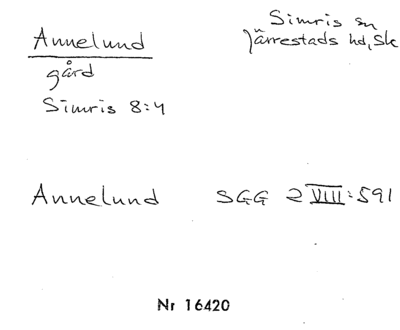 Annelund
gård
Simris 8:4
Simris sn
Järrestads hd, Sk
Annelund SGG 2 VIII:591
Nr 16420